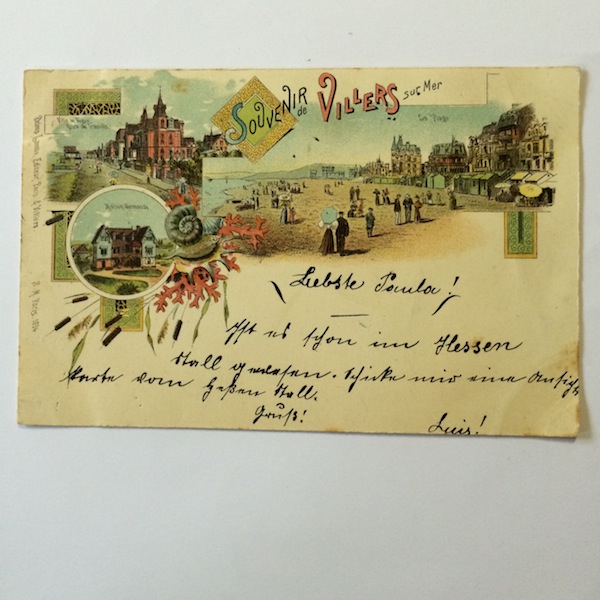 SOUVENIR de VILLERS sur Mer
La Plage
Liebste Paula!
Ist es schon im Hessen
Stall gewesen. Schicke mir eine Ansichts
karte vom Heßen Stall.
Gruß!
Luis!